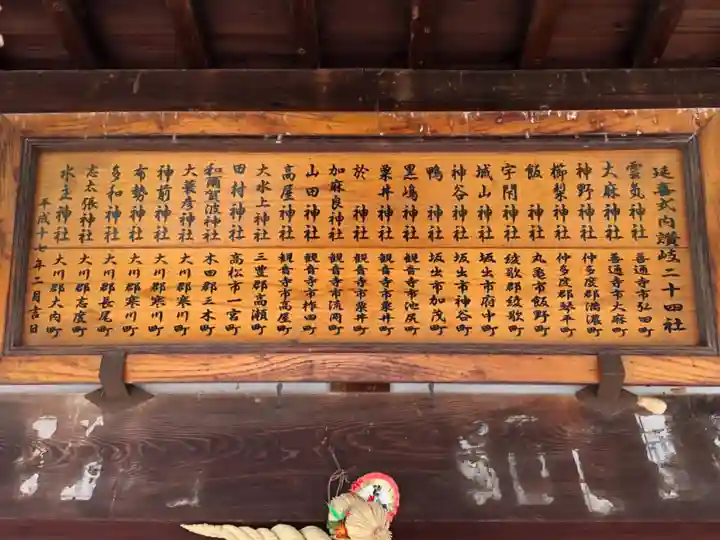 延喜式内讃岐二十四社
雲気神社 善通寺市弘田町
大麻神社 善通寺市大麻町
神野神社 仲多度郡満濃町
櫛梨神社 仲多度郡琴平町
飯神社 丸亀市飯野町
宇閇神社 綾歌郡綾歌町
城山神社 坂出市府中町
神谷神社 坂出市神谷町
鴨神社 坂出市加茂町
黒嶋神社 観音寺市池尻町
粟井神社 観音寺市粟井町
於神社 観音寺市粟井町
加麻良神社 観音寺市流岡町
山田神社 観音寺市柞田町
高屋神社 観音寺市高屋町
大水上神社 三豊郡高瀬町
田村神社 高松市一宮町
和爾賀波神社 木田郡三木町
大蓑彦神社 大川郡寒川町
神前神社 大川郡寒川町
布勢神社 大川郡寒川町
多和神社 大川郡長尾町
志太張神社 大川郡志度町
水主神社 大川郡大内町
平成十七年二月吉日